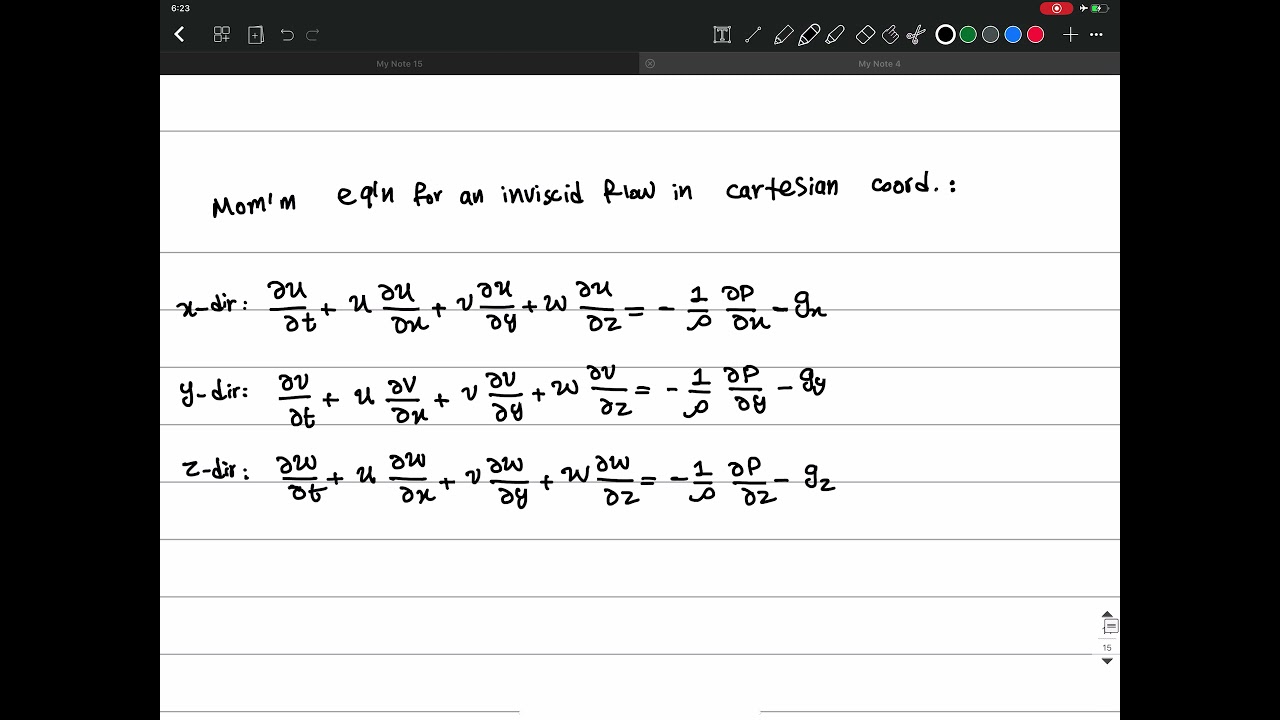 6:23
My Note 15
My Note 4
Mom'm eq'n for an inviscid flow in cartesian coord. :
x-dir: ∂u/∂t + u ∂u/∂x + v ∂u/∂y + w ∂u/∂z = - 1/ρ ∂P/∂x - gx
y-dir: ∂v/∂t + u ∂v/∂x + v ∂v/∂y + w ∂v/∂z = - 1/ρ ∂P/∂y - gy
z-dir: ∂w/∂t + u ∂w/∂x + v ∂w/∂y + w ∂w/∂z = - 1/ρ ∂P/∂z - gz
15